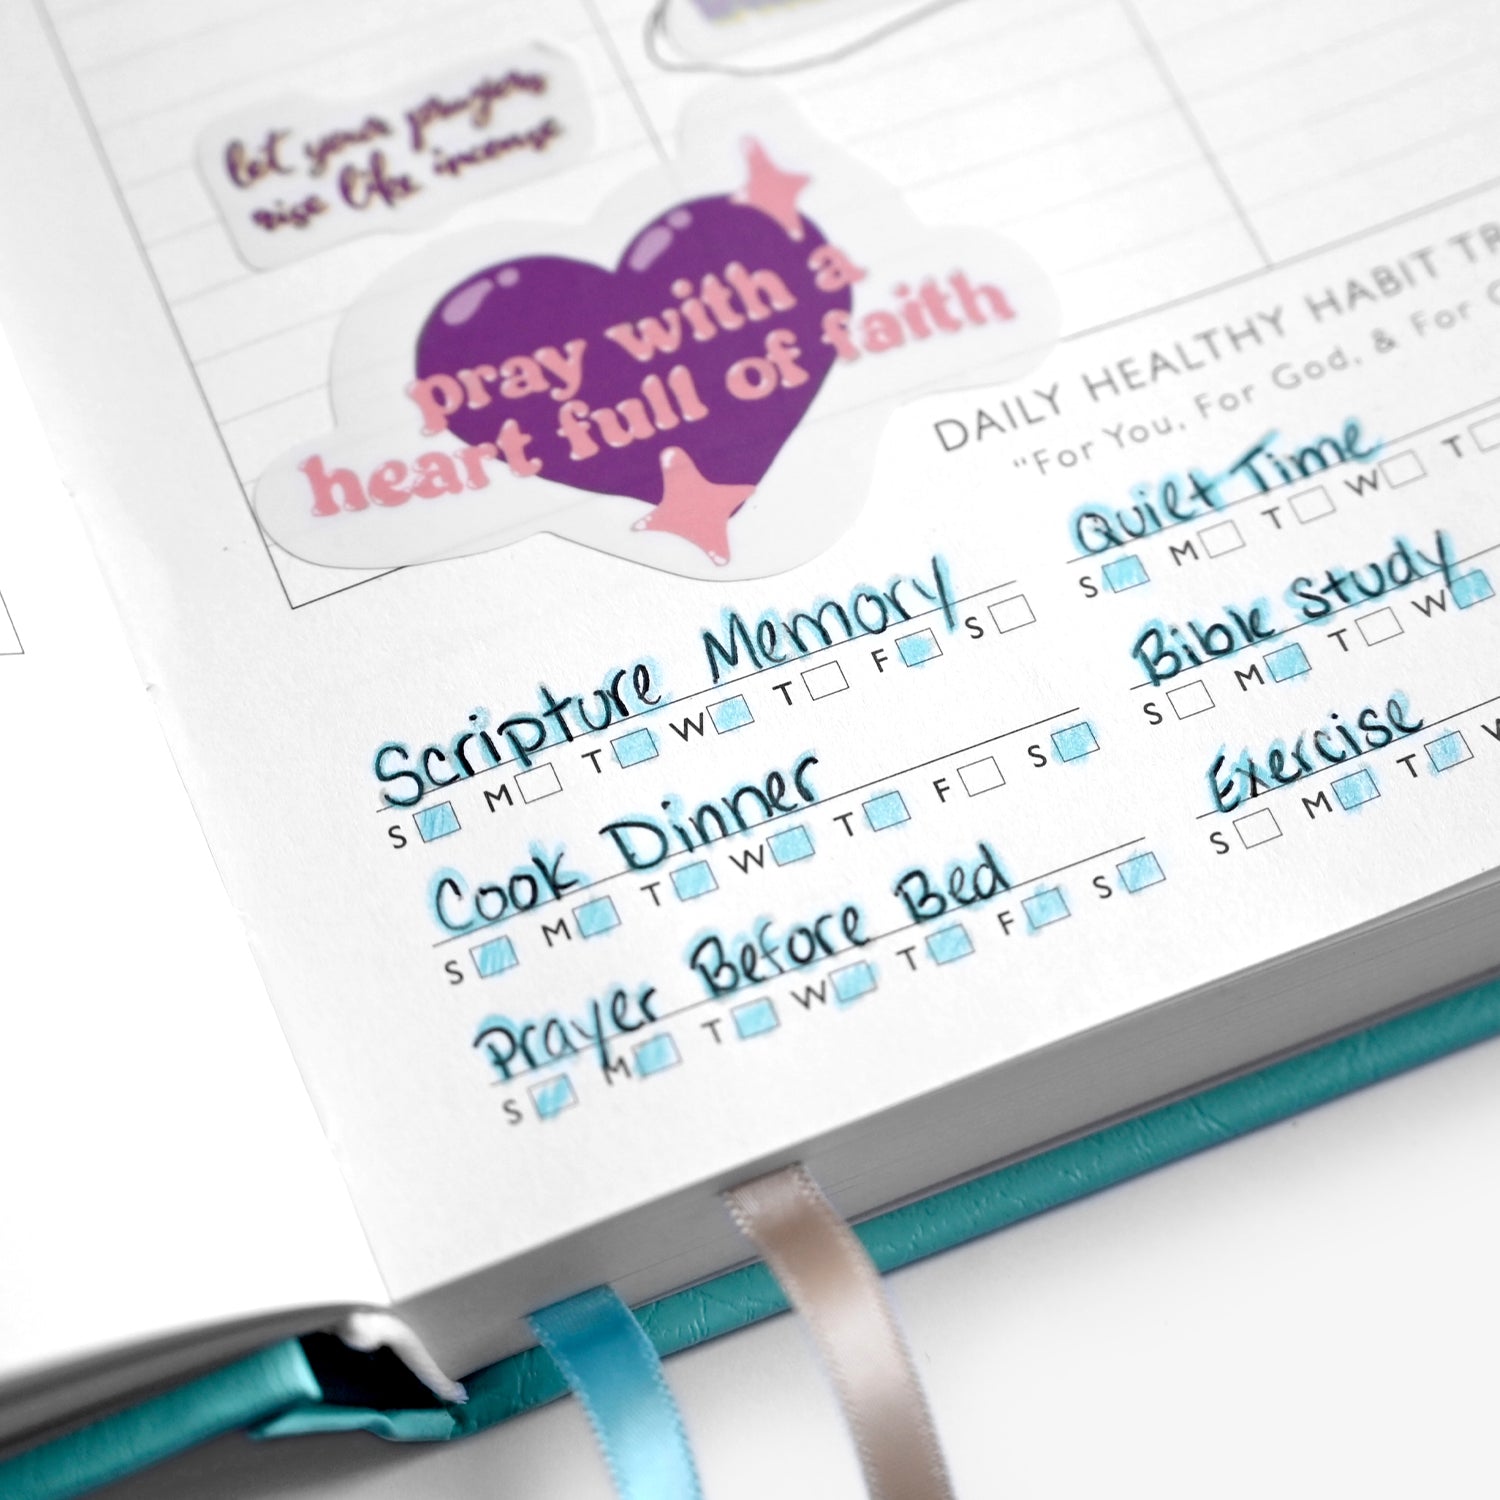 let your prayers
rise like incense
pray with a
heart full of faith
DAILY HEALTHY HABIT
"For You, For God, & For
Scripture Memory
S M T W T F S
Cook Dinner
S M T W T F S
Prayer Before Bed
S M T W T F S
Quiet Time
S M T W T
Bible Study
S M T W
Exercise
S M T W